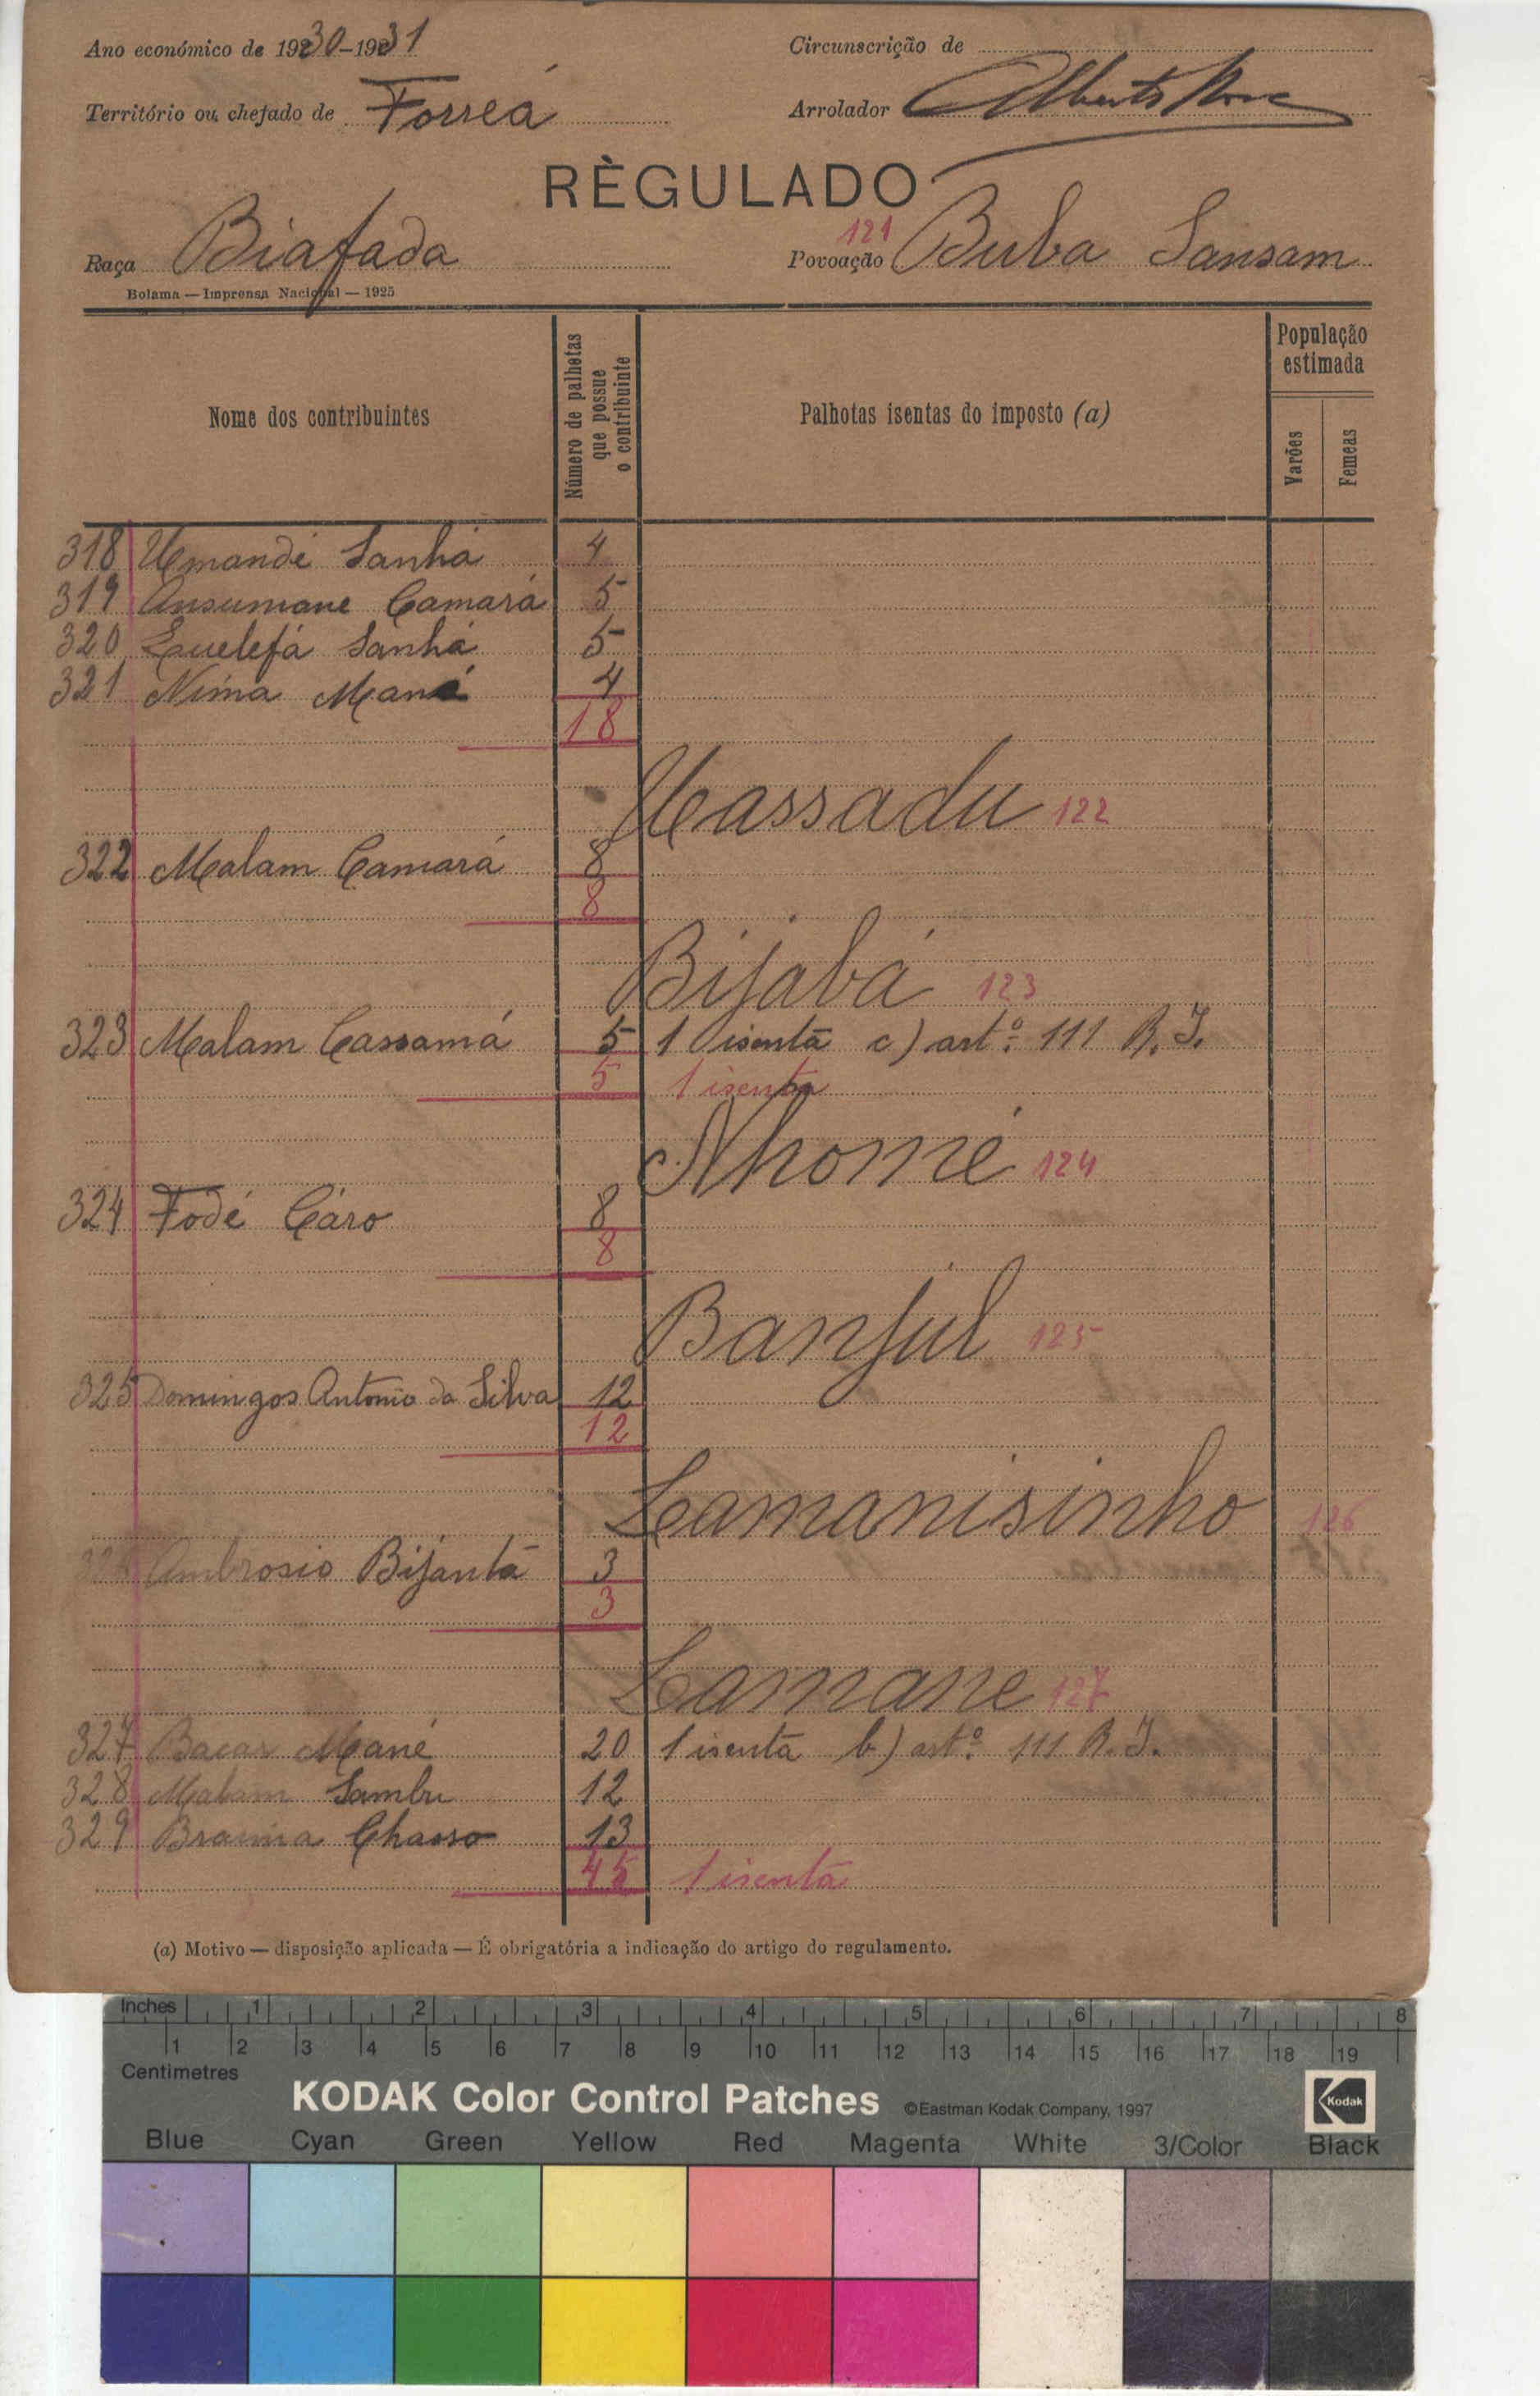 Ano económico de 1930-1931
Circunscrição de
Território ou chefado de Forreá
Arrolador Alberto
RÈGULADO
Raça Biafada
121
Povoação Buba Sansam
Bolama — Imprensa Nacional — 1925
Nome dos contribuintes
Número de palhotas que possue o contribuinte
Palhotas isentas do imposto (a)
População estimada
Varões
Femeas
318 Umandi Sanhá 4
319 Ansumane Camará 5
320 Quelefá Sanhá 5
321 Nima Mané 4
18
Uassadu 122
322 Malam Camará 8
8
Bijabá 123
323 Malam Cassamá 5 1 isenta c) artº. 111 R. I.
5 1 isenta
Nhomé 124
324 Fodé Cáro 8
8
Banjul 125
325 Domingos Antonio da Silva 12
12
Lamanisinho 126
326 Ambrosio Bijantã 3
3
Lamane 127
327 Bacar Mané 20 1 isenta b) artº. 111 R. I.
328 Malam Sambu 12
329 Braima Chasso 13
45 1 isenta
(a) Motivo — disposição aplicada — É obrigatória a indicação do artigo do regulamento.
Inches 1 2 3 4 5 6 7 8
1 2 3 4 5 6 7 8 9 10 11 12 13 14 15 16 17 18 19
Centimetres
KODAK Color Control Patches ©Eastman Kodak Company, 1997 Kodak
Blue Cyan Green Yellow Red Magenta White 3/Color Black